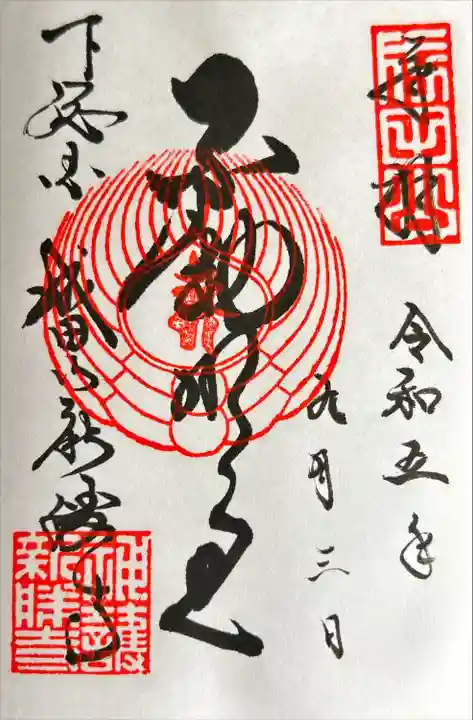 奉拝
令和五年
九月三日
不動明王
下総国 成田山新勝寺